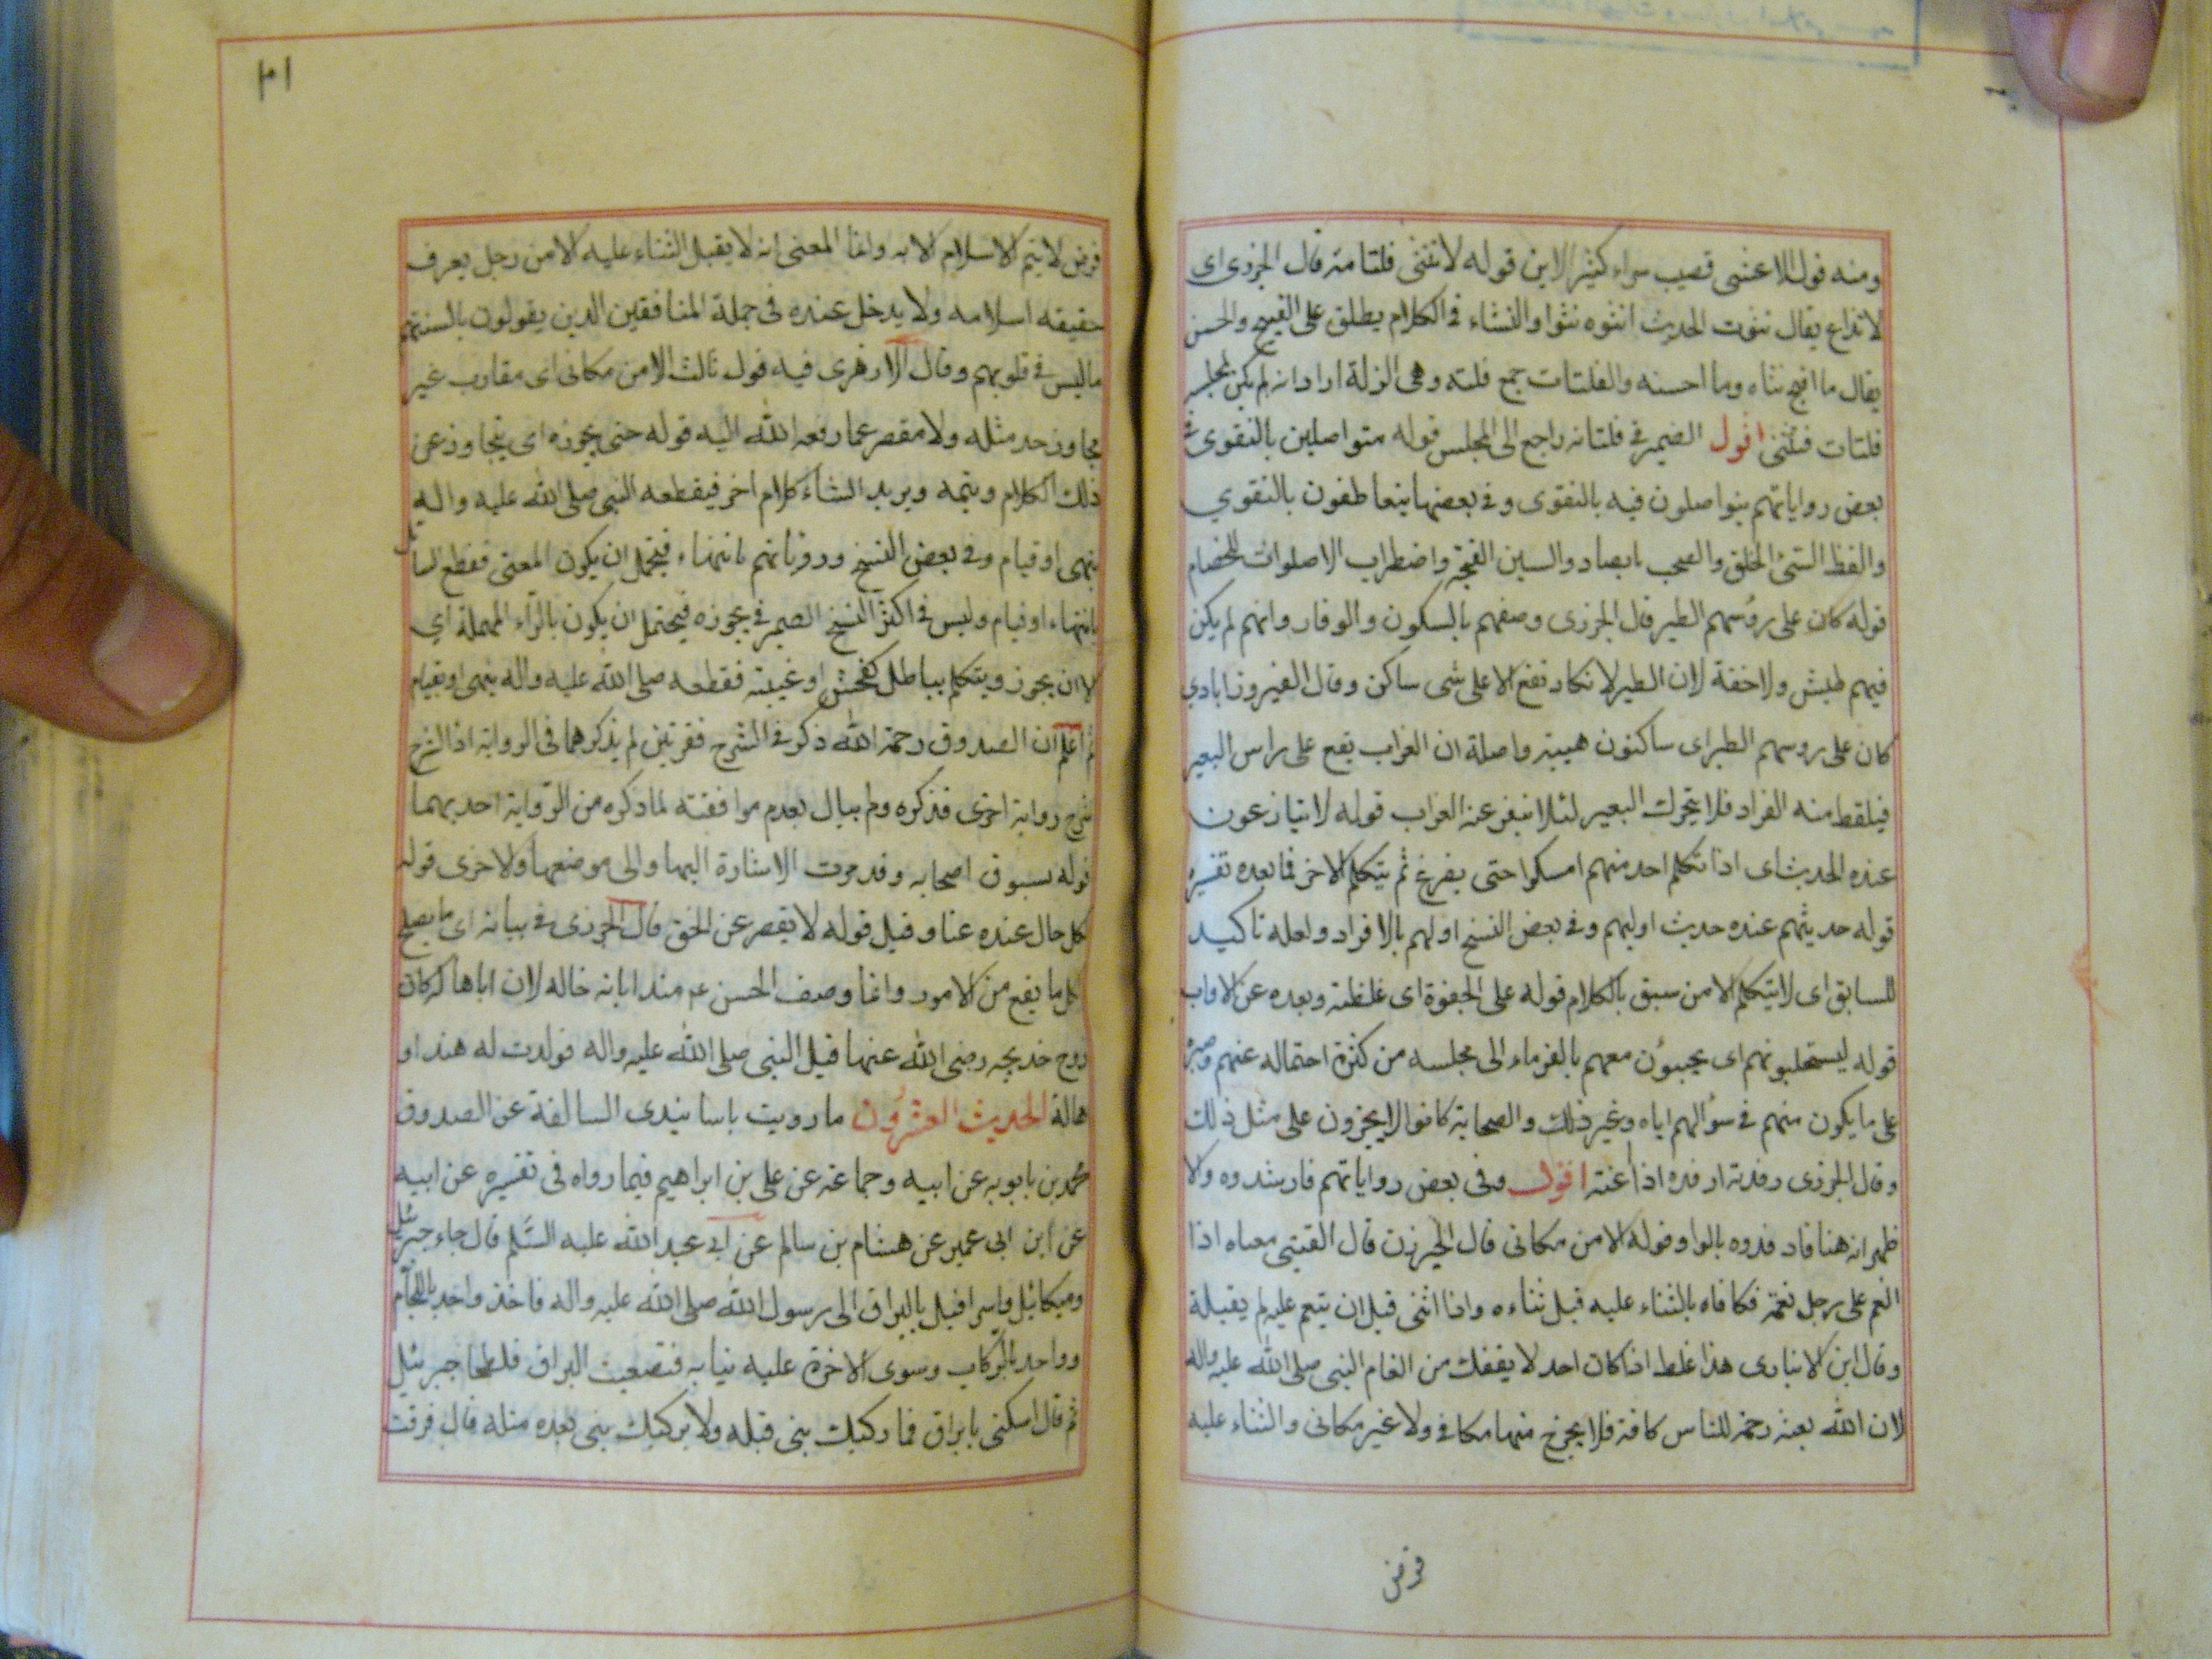 ومنه قول الاعشى قصيب سراء كثير الابن قوله لا تنثى فلتاته قال الجزرى اى
لا تذاع يقال نثوت الحديث انثوه نثوا والنثاء فى الكلام يطلق على القبيح والحسن
يقال ما اقبح نثاه وما احسنه والفلتات جمع فلته وهى الزلة اراد انه لم يكن لمجلسه
فلتات فتنثى اقول الضمير فى فلتاته راجع الى المجلس قوله متواصلين بالتقوى فى
بعض رواياتهم يتواصلون فيه بالتقوى وفى بعضها يتعاطفون بالتقوي
والفظ السّئ الخلق والصخب بالصاد والسين الضجة واضطراب الاصوات للخصام
قوله كان على رؤسهم الطير قال الجزرى وصفهم بالسكون والوقار وانهم لم يكن
فيهم طيش ولا خفة لان الطير لا تكاد تقع الا على شى ساكن وقال الفيروزابادي
كان على روسهم الطير اى ساكنون هيبة واصله ان الغراب يقع على راس البعير
فيلقط منه القراد فلا يتحرك البعير لئلا ينفر عنه الغراب قوله لا يتنازعون
عنده الحديث اى اذا تكلم احد منهم امسكوا حتى يفرغ ثم يتكلم الاخر فما بعده تفسيره
قوله حديثهم عنده حديث اوليهم وفى بعض النسخ اولهم بالافراد ولعله تاكيد
للسابق اى لا يتكلم الا من سبق بالكلام قوله على الجفوة اى غلظته وبعده عن الاداب
قوله ليستجلبونهم اى يجيبؤن معهم بالغرماء الى مجلسه من كثرة احتماله عنهم وصبره
على ما يكون منهم فى سؤالهم اياه وغير ذلك والصحابة كانوا لا يجترون على مثل ذلك
وقال الجزرى رفدته ارفده اذا اعنته اقول وفى بعض رواياتهم فارشدوه والا
ظهر انه هنا فارفدوه بالواو قوله الا من مكافى قال الجزرى قال القتيبى معناه اذا
انعم على رجل نعمة فكافاه بالثناء عليه قبل ثناءه واذا اثنى قبل ان ينعم عليه لم يقبله
وقال ابن الانبارى هذا غلط اذ كان احد لا ينفك من انعام النبى صلى الله عليه واله
لان الله بعثه رحمة للناس كافة فلا يخرج منها مكافى ولا غير مكافى والثناء عليه
فرض
۲۱
فرض لا يتم الاسلام الا به وانما المعنى انه لا يقبل الثناء عليه الا من رجل يعرف
حقيقه اسلامه ولا يدخل عنده فى جملة المنافقين الدين يقولون بالسنتهم
ما ليس فى قلوبهم وقال الازهرى فيه قول ثالث الا من مكافى اى مقارب غير
مجاوز حد مثله ولا مقصر عما رفعه الله اليه قوله حتى يجوزه اى يتجاوز عن
ذلك الكلام ويتمه ويريد انشاء كلام اخر فيقطعه النبى صلى الله عليه واله
بنهى او قيام وفى بعض النسخ ورواياتهم بانتهاء فيحتمل ان يكون المعنى فقطع السائل
بانتهاء او قيام وليس فى اكثر النسخ الضمير فى يجوزه فيحتمل ان يكون بالرّاء المهملة اي
لا ان يجور ويتكلم بباطل كفحش او غيبة فقطعه صلى الله عليه واله بنهى او بقيام
ثم اعلم ان الصدوق رحمة الله ذكر فى الشرح فقرتين لم يذكرهما فى الرواية اذ الشرح
شرح رواية اخرى فذكره ولم يبال بعدم موافقته لما ذكره من الرّواية احديهما
قوله يسوق اصحابه وقد مرت الاشارة اليها والى موضعها والاخرى قوله
لكل حال عنده عتاد وقيل قوله لا يقصر عن الحق قال الجزرى فى بيانه اى ما يصلح
لكل ما يقع من الامور وانما وصف الحسن عم هندا بانه خاله لان اباها له كان
زوج خديجه رضى الله عنها قبل النبى صلى الله عليه واله فولدت له هندا و
هالة الحديث العشرون ما رويت باسانيدى السالفة عن الصدوق
محمد بن بابويه عن ابيه وجماعة عن على بن ابراهيم فيما رواه فى تفسيره عن ابيه
عن ابن ابى عمير عن هشام بن سالم عن ابى عبد الله عليه السّلم قال جاء جبرئيل
وميكائيل واسرافيل بالبراق الى رسول الله صلى الله عليه واله فاخذ واحد باللجام
وواحد بالركاب وسوى الاخرة عليه ثيابه فتصعبت البراق فلطمها جبرئيل
ثم قال اسكنى يا براق فما ركبك بنى قبله ولا يركبك بنى بعده مثله قال فرقت